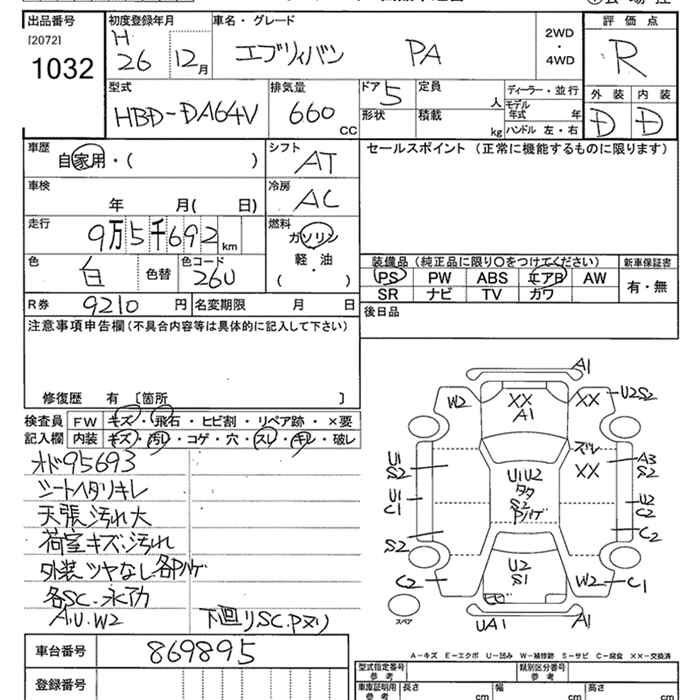 出品番号
[2072]
1032
初度登録年月
H
26 12月
車名・グレード
エブリィバン PA
2WD
・
4WD
評価点
R
型式
HBD-DA64V
排気量
660
CC
ドア
5
形状
定員
人
積載
kg
ディーラー・並行
モデル
年式 年
ハンドル 左・右
外装 内装
D D
車歴
自家用・( )
シフト
AT
セールスポイント (正常に機能するものに限ります)
車検
年 月( 日)
冷房
AC
走行
9万5千692km
燃料
ガソリン
・
軽・油
( )
色
白
色替
色コード
26U
装備品(純正品に限り○をつけてください)
PS PW ABS エアB AW
SR ナビ TV カワ
新車保証書
有・無
R券 9210 円
名変期限 月 日
後日品
注意事項申告欄(不具合内容等は具体的に記入して下さい)
修復歴 有 [箇所 ]
検査員
記入欄
FW キズ・飛石・ヒビ割・リペア跡・×要
内装 キズ・汚れ・コゲ・穴・スレ・キレ・破レ
オド95693
シートヘタリキレ
天張汚れ大
荷室キズ・汚れ
外装ツヤなし各Pハゲ
各SC・凹
A.U.W2
下廻りSC.Pヌリ
A1
W2
XX
A1
XX
U2S2
ズレ
XX
U1
S2
A3
S2
U1
C1
U1U2
タタ
S2
Pハゲ
U2
C2
S2
C2
C2
U2
S1
W2
C1
スペア
UA1
A1
A-キズ E-エクボ U-凹み W-補修跡 S-サビ C-腐食 XX-交換済
車台番号
869895
登録番号
型式指定番号
参考
類別区分番号
参考
車庫証明用
参考
長さ
cm
幅
cm
高さ
cm